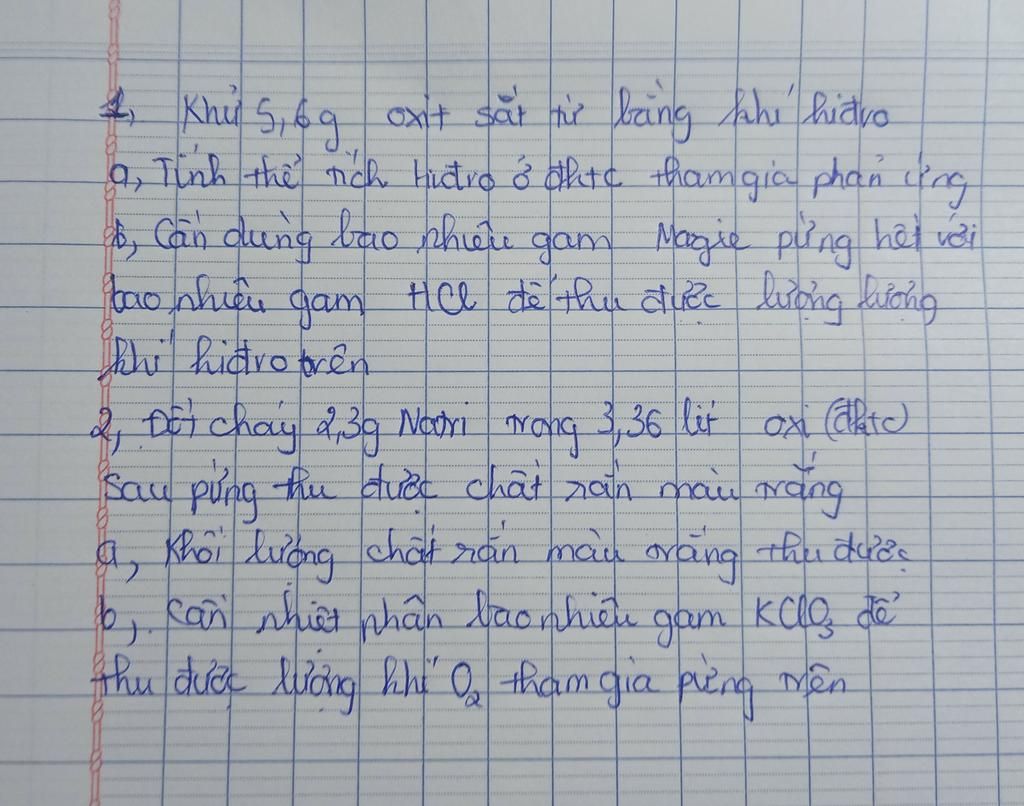 1, Khử 5,6g oxit sắt từ bằng khí hiđro
a, Tính thể tích Hiđro ở đktc tham gia phản ứng
b, Cần dùng bao nhiêu gam Magie pứng hết với
bao nhiêu gam HCl để thu được lượng lượng
khí hiđro trên
2, Đốt cháy 2,3g Natri trong 3,36 lít oxi (đktc)
sau pứng thu được chất rắn màu trắng
a, Khối lượng chất rắn màu trắng thu được
b, Cần nhiệt phân bao nhiêu gam KClO₃ để
thu được lượng khí O₂ tham gia pứng trên